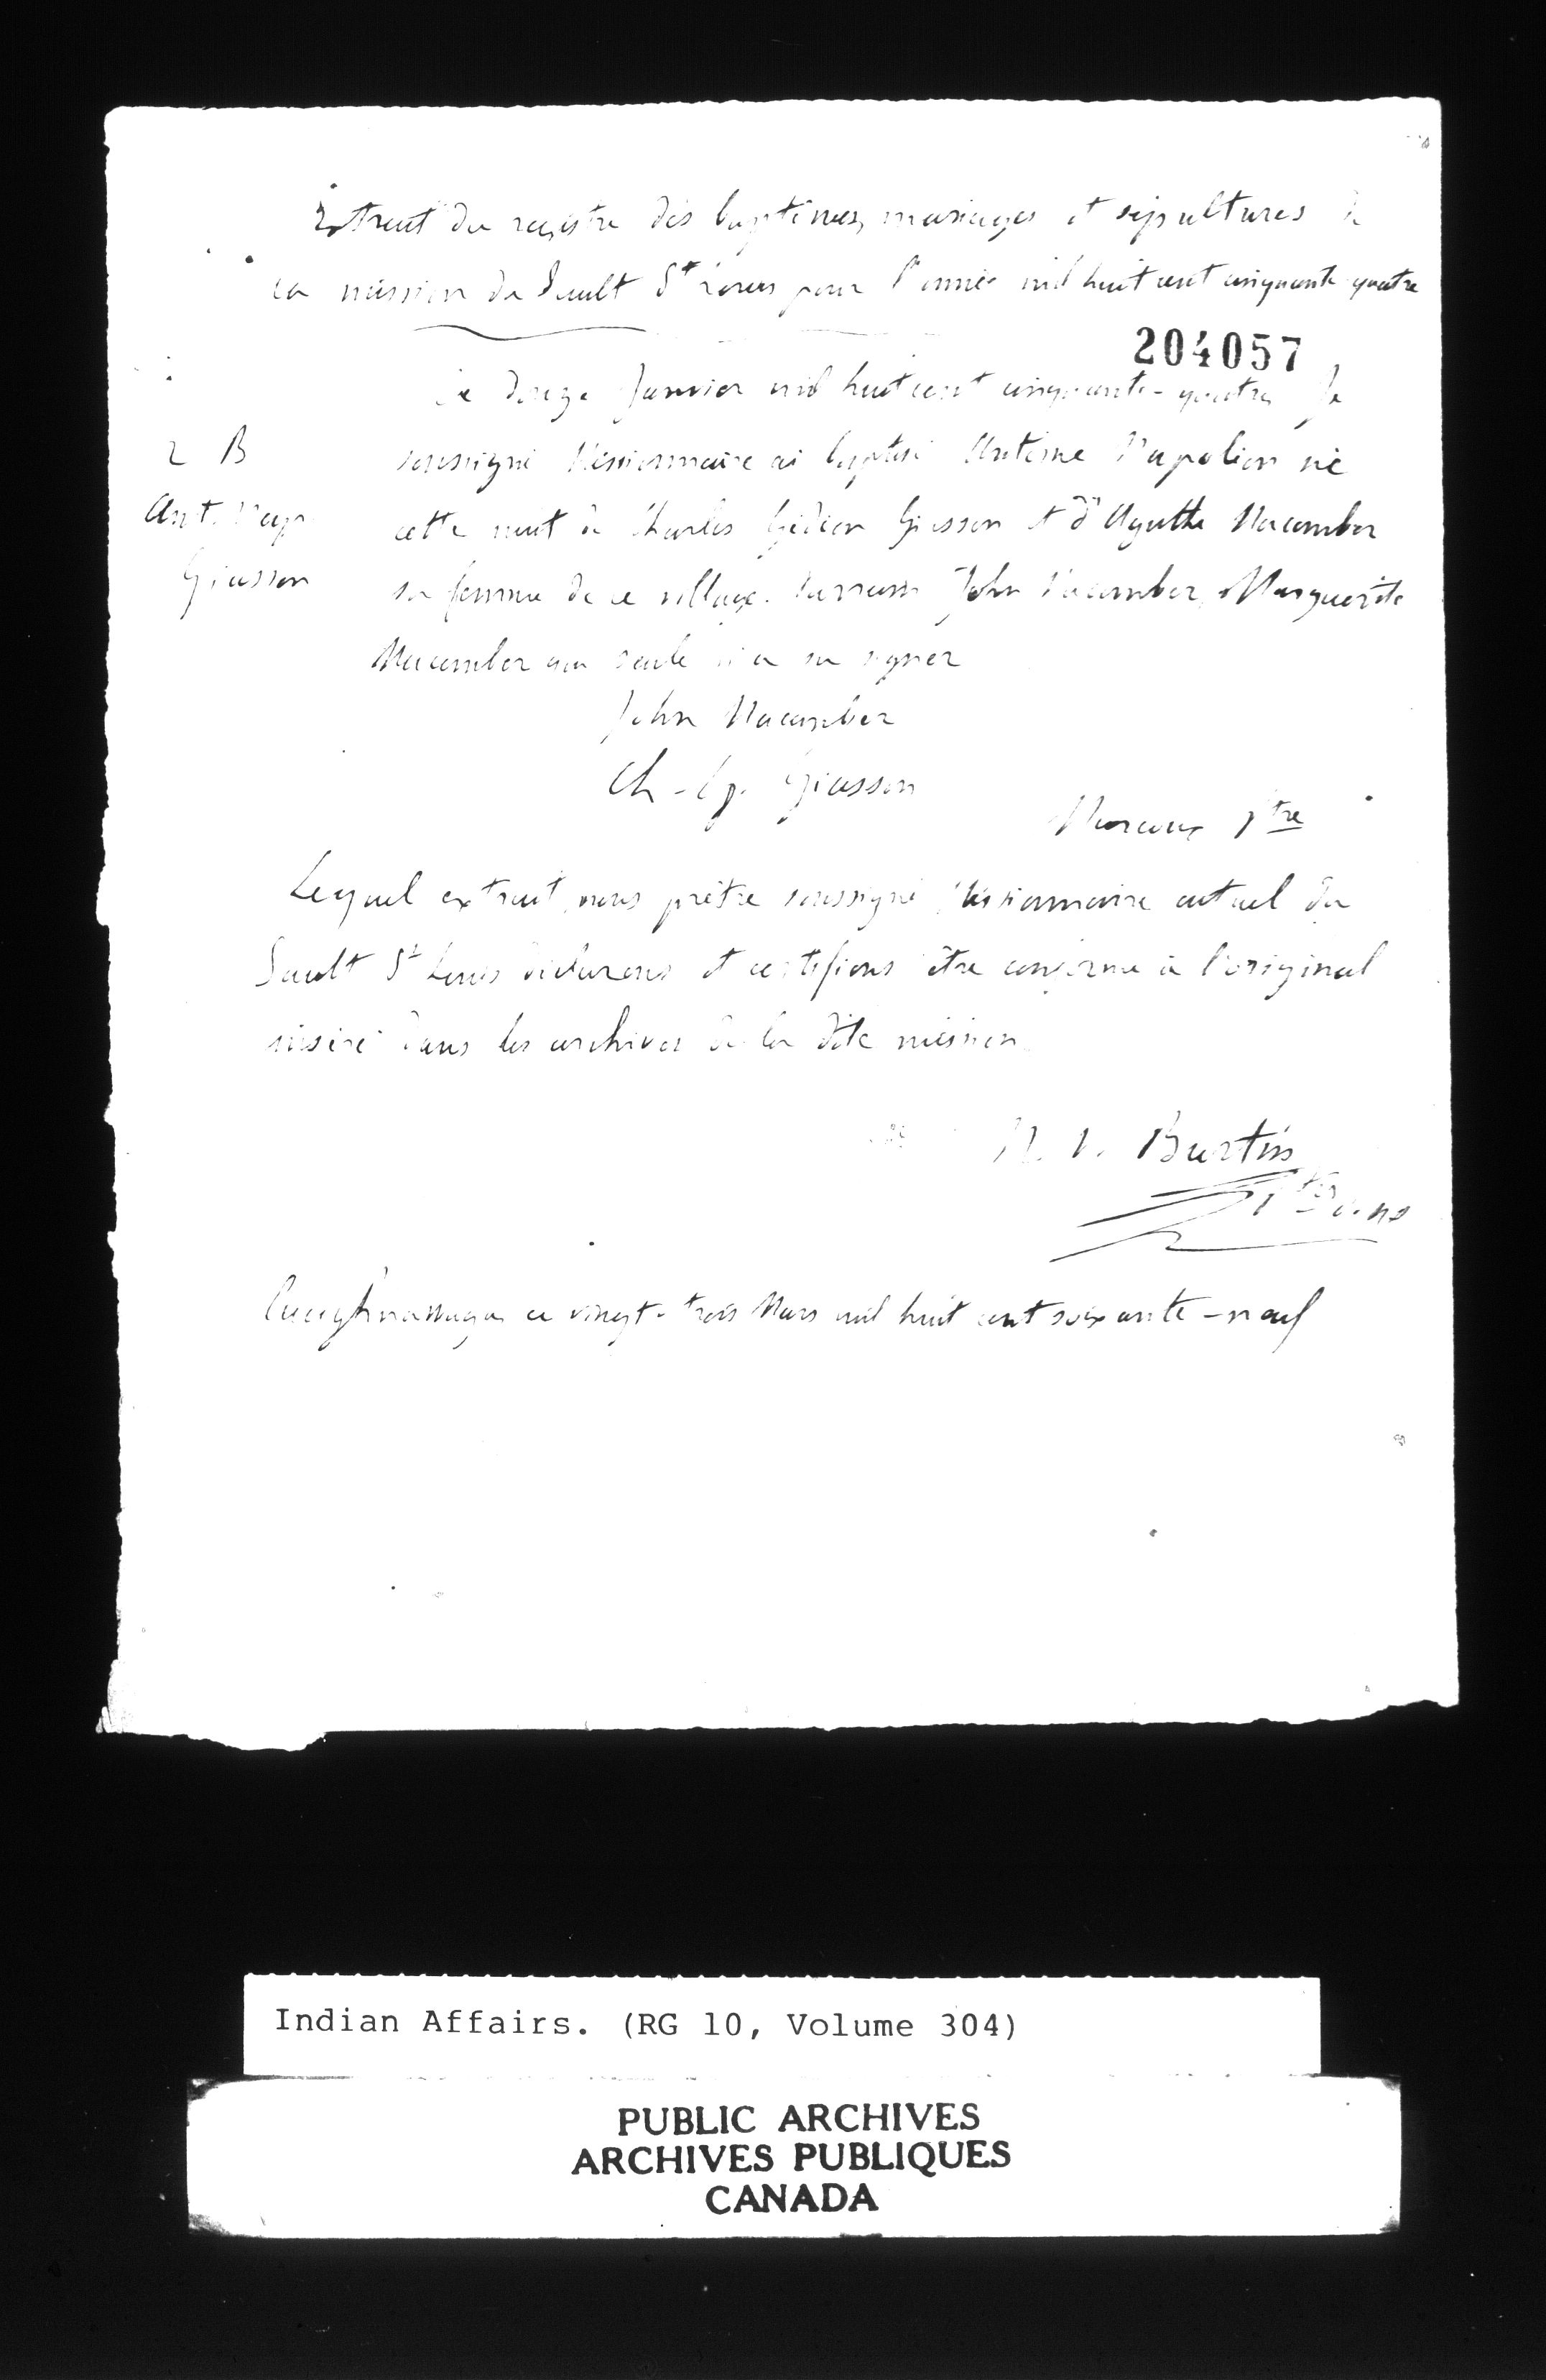 Extrait du registre des baptêmes, mariages et sépultures de
la mission du Sault St Louis pour l'année mil huit cent cinquante quatre
204057
Le douze Janvier mil huit cent cinquante-quatre Je
2 B
soussigné Missionnaire ai baptisé Antoine Napoléon né
Ant. Nap
cette nuit de Charles Gédéon Giasson et d'Agathe Macomber
Giasson
sa femme de ce village. Parrain John Macomber, Marguerite
Macomber qui seule n'a su signer
John Macomber
Ch-Gg. Giasson
Marcoux Ptre
Lequel extrait, nous prêtre soussigné, Missionnaire actuel du
Sault St Louis déclarons et certifions être conforme à l'original
inséré dans les archives de la dite mission.
N. V. Burtin
Ptre o.m.i
Caughnawaga ce vingt-trois Mars mil huit cent soixante-neuf
Indian Affairs. (RG 10, Volume 304)
PUBLIC ARCHIVES
ARCHIVES PUBLIQUES
CANADA